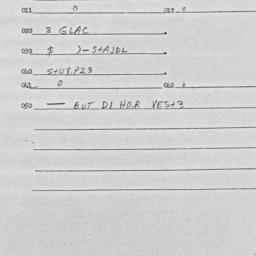 011 0 012 0
020 3 GLAC
030 $ )-S+AJDL
040 S+U8.P23
041 0 042
050 — EUT DI HO.R VES+3